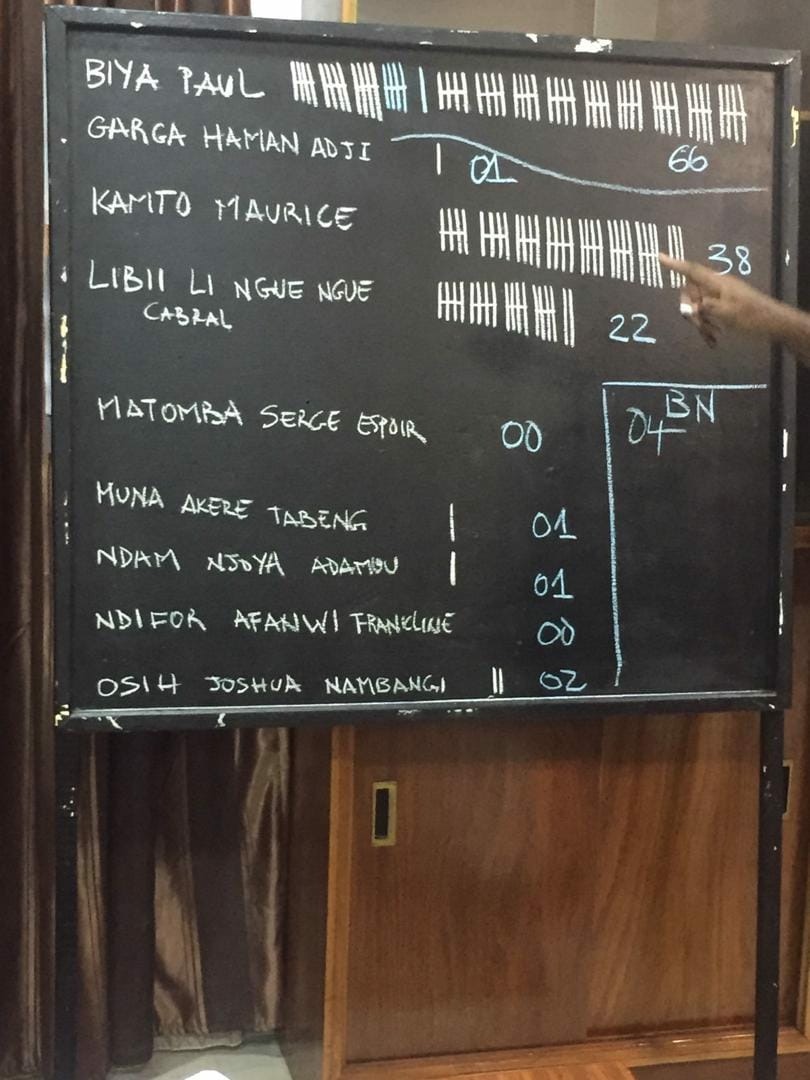 BIYA PAUL
66
GARGA HAMAN ADJI 01
KAMTO MAURICE 38
LIBII LI NGUE NGUE
CABRAL 22
MATOMBA SERGE ESPOIR 00
BN
04
MUNA AKERE TABENG 01
NDAM NJOYA ADAMOU 01
NDIFOR AFANWI FRANKLINE 00
OSIH JOSHUA NAMBANGI 02